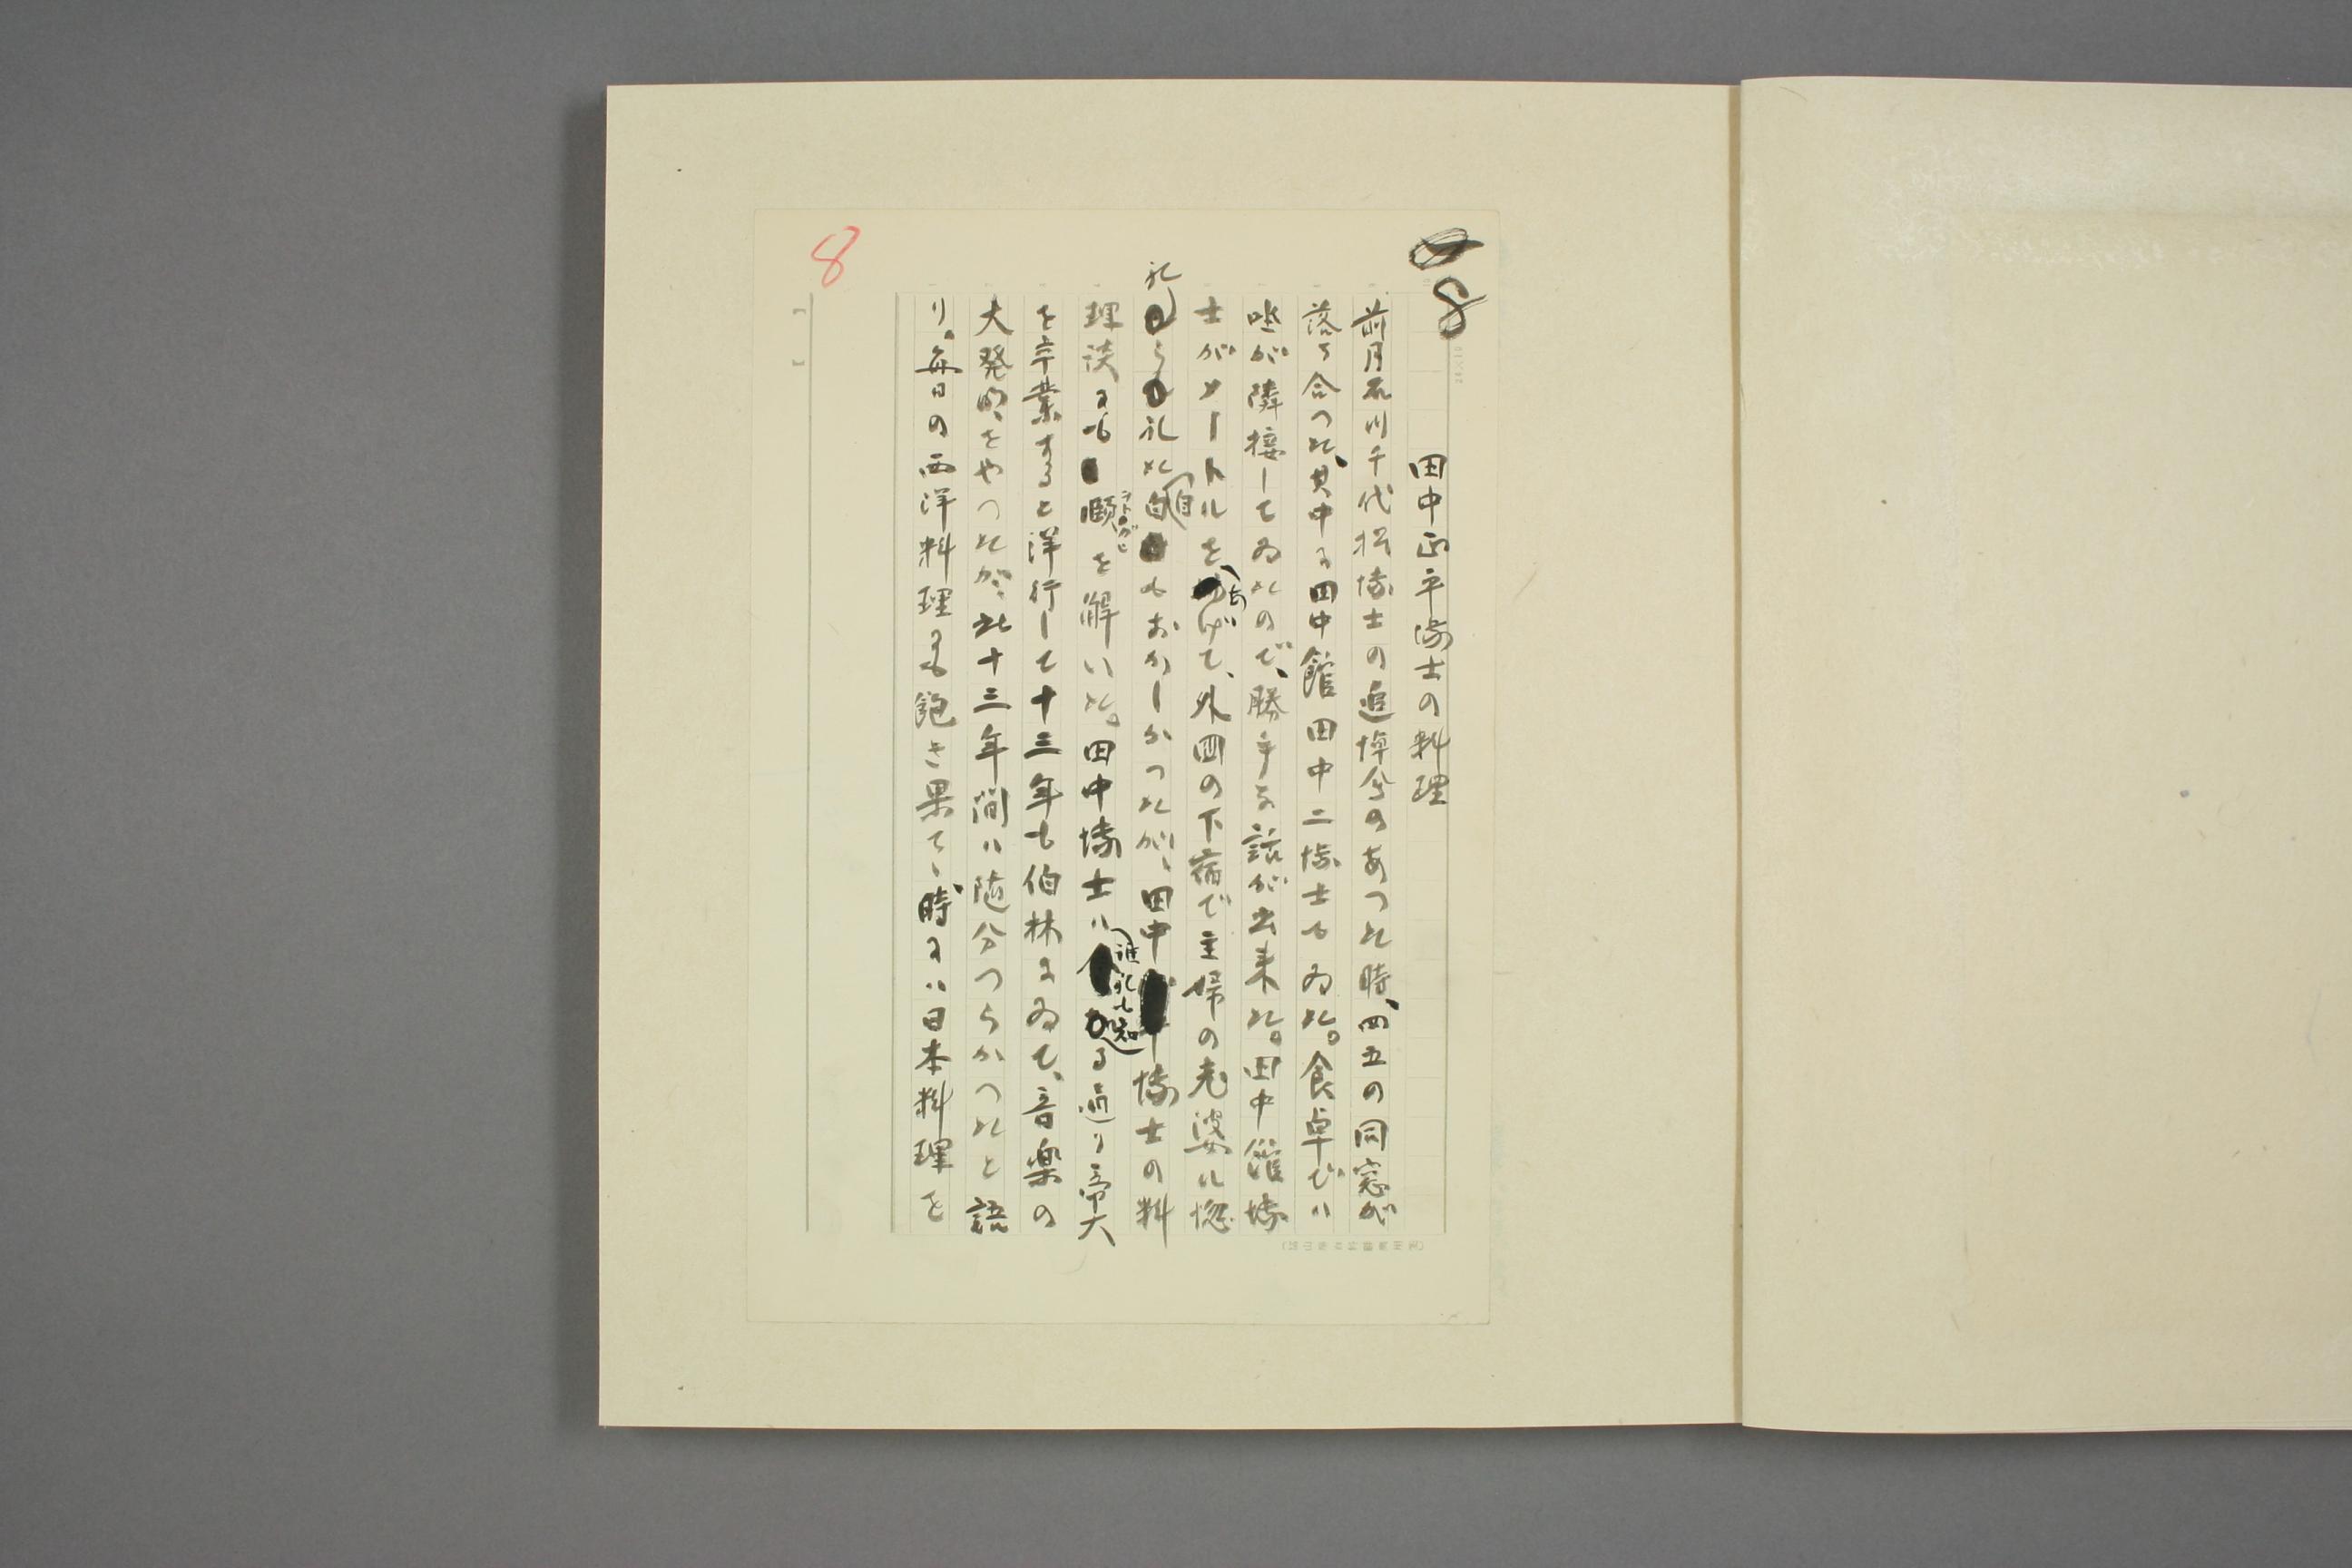 8
田中正平博士の料理
前月石川千代松博士の追悼会のあつた時、四五の同窓が
落ち合つた、其中に田中館田中二博士もゐた。食卓では
坐が隣接してゐたので、勝手な話が出来た。田中館博
士がメートルをあげて、外国の下宿で主婦の老婆に惚
れられた自白もおかしかつたが、田中博士の料
理談にも頤を解いた。田中博士は誰れも知る通り帝大
オトガヒ
を卒業すると洋行して十三年も伯林にゐて、音楽の
大発明をやつたが、此十三年間は随分つらかつたと語
り。毎日の西洋料理にも飽き果てゝ時には日本料理を
8